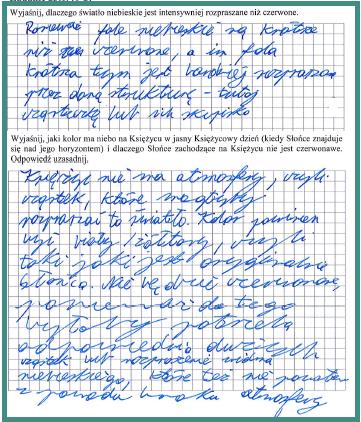 Wyjaśnij, dlaczego światło niebieskie jest intensywniej rozpraszane niż czerwone.
Ponieważ fale niebieskie są krótsze
niż czerwone, a im fala
krótsza tym jest bardziej rozpraszana
przez daną strukturę - tutaj
cząsteczkę lub ich skupisko
Wyjaśnij, jaki kolor ma niebo na Księżycu w jasny Księżycowy dzień (kiedy Słońce znajduje
się nad jego horyzontem) i dlaczego Słońce zachodzące na Księżycu nie jest czerwonawe.
Odpowiedź uzasadnij.
Księżyc nie ma atmosfery, czyli
cząstek, które mogłyby
rozpraszać to światło. Kolor powinien
być biały i żółtawy, czyli
taki jaki jest oryginalnie
słońca. Nie będzie czerwonawe,
ponieważ do tego
byłoby potrzeba
odpowiednio dużych
cząstek lub rozproszenie widma
niebieskiego, które też nie powstanie
z powodu braku atmosfery